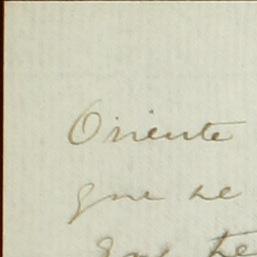 Oriente
que se